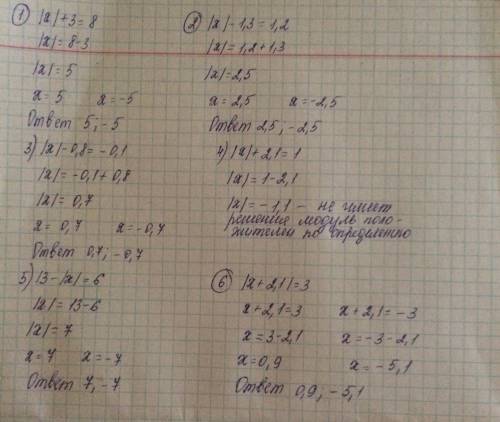 1) |x|+3=8
|x|=8-3
|x|=5
x=5 x=-5
Ответ 5; -5
2) |x|-1,3=1,2
|x|=1,2+1,3
|x|=2,5
x=2,5 x=-2,5
Ответ 2,5; -2,5
3) |x|-0,8=-0,1
|x|=-0,1+0,8
|x|=0,7
x=0,7 x=-0,7
Ответ 0,7; -0,7
4) |x|+2,1=1
|x|=1-2,1
|x|=-1,1 - не имеет
решения модуль поло-
жителен по определению
5) 13-|x|=6
|x|=13-6
|x|=7
x=7 x=-7
Ответ 7, -7
6) |x+2,1|=3
x+2,1=3 x+2,1=-3
x=3-2,1 x=-3-2,1
x=0,9 x=-5,1
Ответ 0,9; -5,1